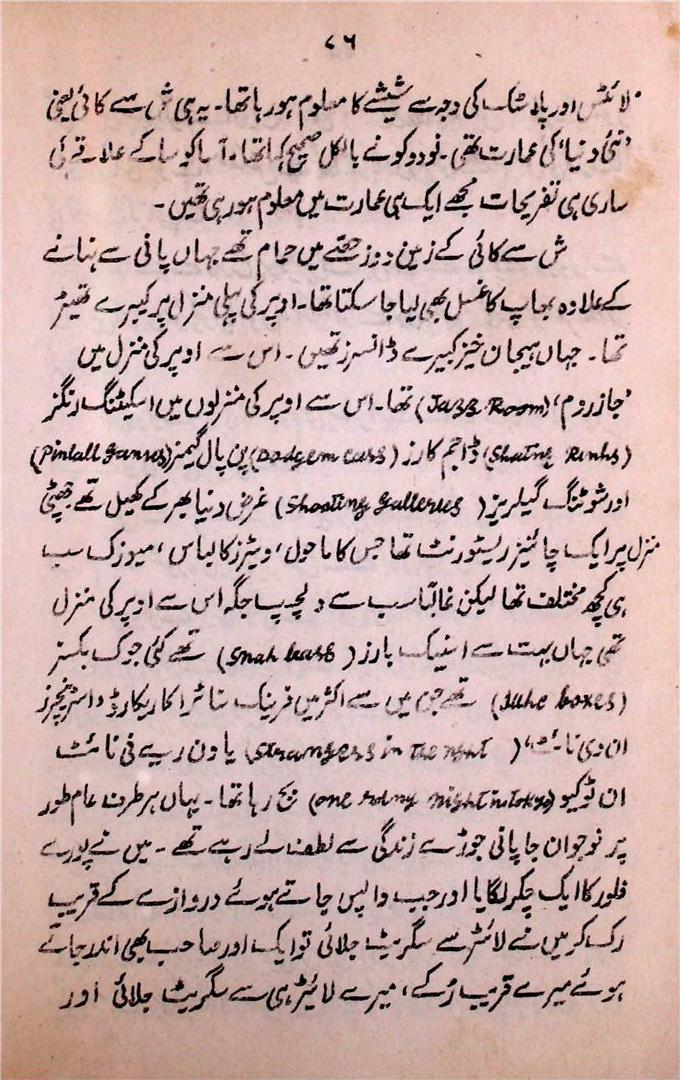 ۷۶
لائٹس اور پلاسٹک کی وجہ سے شیشے کا معلوم ہو رہا تھا۔ یہ ہی ش سے کائی یعنی
’نئی دنیا‘ کی عمارت تھی۔ نودوکو نے بالکل صحیح کہا تھا۔ آساکوسا کے علاقے کی
ساری ہی تفریحات مجھے ایک ہی عمارت میں معلوم ہو رہی تھیں۔
ش سے کائی کے زمین دوز حصّے میں حمام تھے جہاں پانی سے نہانے
کے علاوہ بھاپ کا غسل بھی لیا جا سکتا تھا۔ اوپر کی پہلی منزل پر کیبرے تھیٹر
تھا۔ جہاں ہیجان خیز کیبرے ڈانسرز تھیں۔ اس سے اوپر کی منزل میں
’جاز روم‘ (Jazz Room) تھا۔ اس سے اوپر کی منزلوں میں اسکیٹنگ رنگز
(Skating Rinks) ڈاجم کارز (Dodgem cars) پن پال گیمز (Pinball Games)
اور شوٹنگ گیلریز (Shooting Galleries) غرض دنیا بھر کے کھیل تھے چھٹی
منزل پر ایک چائنیز ریسٹورنٹ تھا جس کا ماحول، ویٹرز کا لباس، میوزک سب
ہی کچھ مختلف تھا لیکن غالباً سب سے دلچسپ جگہ اس سے اوپر کی منزل
تھی جہاں بہت سے اسنیک بارز (Snak bars) تھے کئی جوک بکسز
(Juke boxes) تھے جن میں سے اکثر میں فرینک سناٹرا کا ریکارڈ ’اسٹرینجرز
ان دی نائٹ‘ (Strangers in the night) یا ون رینے فی نائٹ
ان ٹوکیو (one rainy night in tokyo) بج رہا تھا۔ یہاں ہر طرف عام طور
پر نوجوان جاپانی جوڑے زندگی سے لطف لے رہے تھے۔ میں نے پورے
فلور کا ایک چکر لگایا اور جب واپس جاتے ہوئے دروازے کے قریب
رک کر میں نے لائٹر سے سگریٹ جلائی تو ایک اور صاحب بھی اندر جاتے
ہوئے میرے قریب رُکے، میرے لائیٹر ہی سے سگریٹ جلائی اور